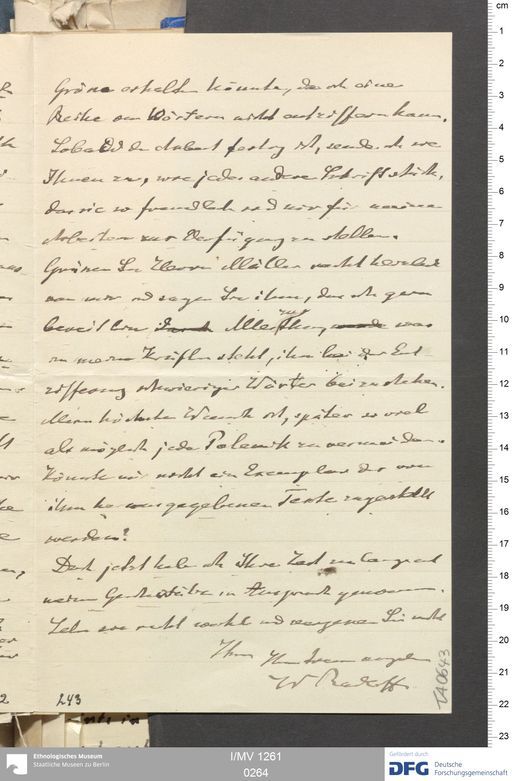 erhalten könnte, da ich eine
Reihe von Wörtern nicht entziffern kann.
Sobald die Arbeit fertig ist, sende ich sie
Ihnen zu, wie jedes andere Schriftstück,
das sie so freundlich sind mir für meine
Arbeiten zur Verfügung zu stellen.
Grüssen Sie Herrn Müller recht herzlich
von mir und sagen Sie ihm, dass ich gern
bereit bin Alles zu thun was
in meinen Kräften steht, ihm bei der Ent
zifferung schwieriger Wörter beizustehen.
Mein höchster Wunsch ist, später so viel
als möglich jede Polemik zu vermeiden.
Könnte mir nicht ein Exemplar der von
ihm herausgegebenen Texte zugestellt
werden?
Doch jetzt habe ich Ihre Zeit zu lange mit
meinem in Anspruch genommen.
Leben sie recht wohl und vergessen Sie nicht
Ihren Ihnen
W Radloff
TA 0643
243
Ethnologisches Museum
Staatliche Museen zu Berlin
I/MV 1261
0264
Gefördert durch
DFG Deutsche
Forschungsgemeinschaft
cm
1
2
3
4
5
6
7
8
9
10
11
12
13
14
15
16
17
18
19
20
21
22
23